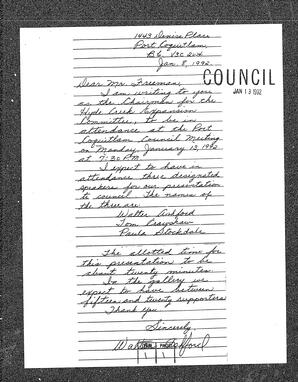 1443 Denise Place
Port Coquitlam,
B.C. V3C 2V4
Jan. 8, 1992
COUNCIL
JAN 13 1992
Dear Mr. Freeman:
I am writing to you
as the Chairman for the
Hyde Creek Expansion
Committee, to be in
attendance at the Port
Coquitlam Council Meeting
on Monday, January 13, 1992
at 7:30 PM
I expect to have in
attendance three designated
speakers for our presentation
to council. The names of
the three are:
Walter Ashford
Tom
Paula Stockdale
The allotted time for
this presentation to be
about twenty minutes.
In the gallery we
expect to have between
fifteen and twenty supporters
Thank you
Sincerely,
Walter Ashford